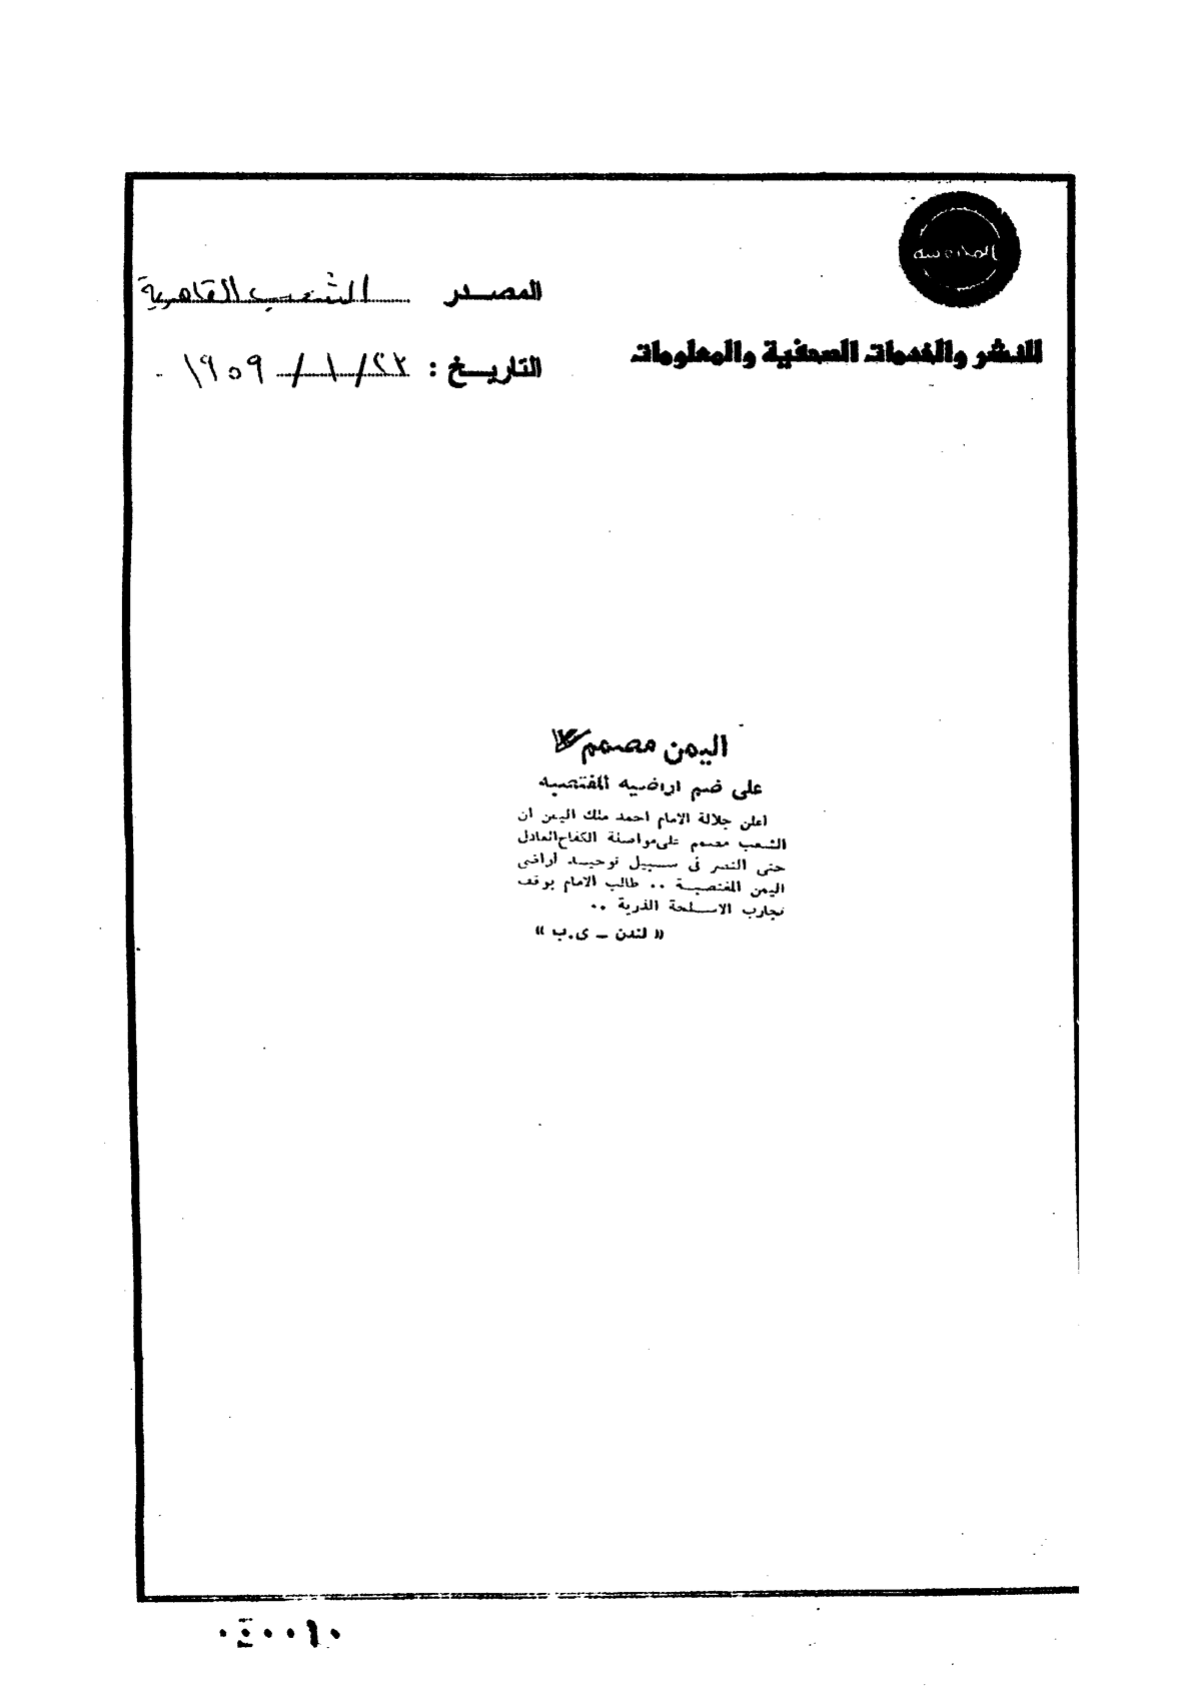 المحروسة
للنشر والخدمات الصحفية والمعلومات
المصدر الشعب القاهرية
التاريخ : ٢٢ / ١ / ١٩٥٩
اليمن مصمم
على ضم اراضيه المغتصبه
اعلن جلالة الامام احمد ملك اليمن ان
الشعب مصمم على مواصلة الكفاح العادل
حتى النصر فى سبيل توحيد أراضى
اليمن المغتصبة .. طالب الامام بوقف
تجارب الاسلحة الذرية ..
« لندن - ى.ب »